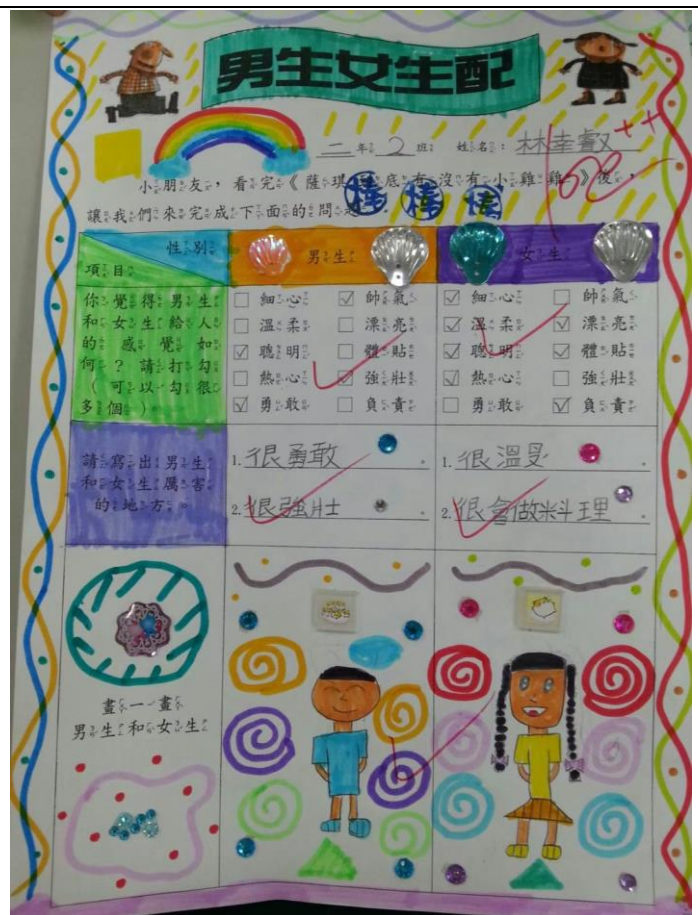 男生女生配
二年2班 姓名:林幸叡
100++
小朋友,看完《薩琪到底有沒有小雞雞》後,
讓我們來完成下面的問題。
棒 棒 棒
性別
項目
男生
女生
你覺得男生
和女生給人
的感覺如
何?請打勾
(可以勾很
多個)
□細心 ☑帥氣
□溫柔 □漂亮
☑聰明 □體貼
□熱心 ☑強壯
☑勇敢 □負責
☑細心 □帥氣
☑溫柔 ☑漂亮
☑聰明 ☑體貼
☑熱心 □強壯
□勇敢 ☑負責
請寫出男生
和女生厲害
的地方。
1.很勇敢。
2.很強壯。
1.很溫柔。
2.很會做料理。
畫一畫
男生和女生